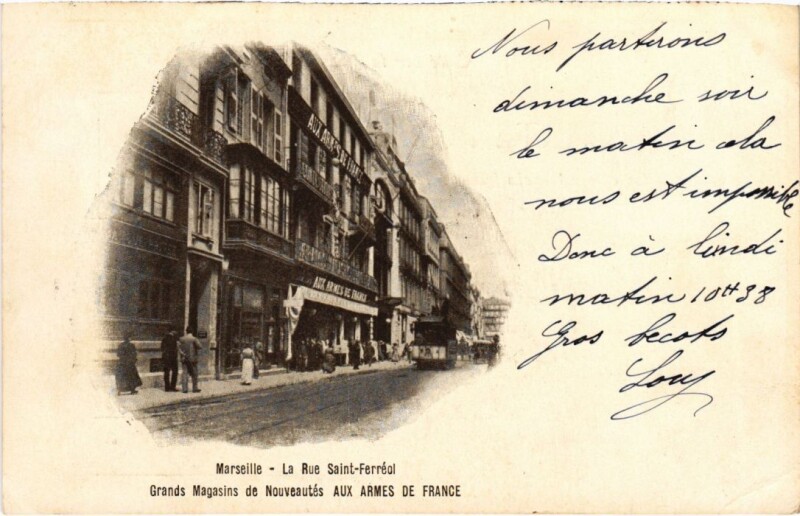 Nous partirons
dimanche soir
le matin cela
nous est impossible
Donc à lundi
matin 10H38
Gros becots
Louy
AUX ARMES DE FRANCE
AUX ARMES DE FRANCE
Marseille - La Rue Saint-Ferréol
Grands Magasins de Nouveautés AUX ARMES DE FRANCE